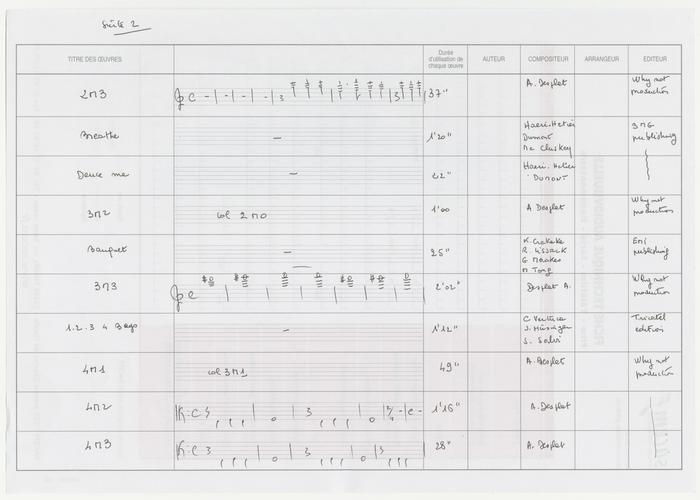 Suite 2
TITRE DES ŒUVRES Durée d'utilisation de chaque œuvre AUTEUR COMPOSITEUR ARRANGEUR EDITEUR
2M3 37" A. Desplat Why not production
Breathe 1'20" Haeri-Hetier Dumont Mc Cluskey 3MG publishing
Deuce me 22" Haeri. Hetier DUMONT
3M2 col 2M0 1'00 A Desplat Why not production
Banquet 25" K. Okereke R. Lissack G Moakes M Tong EMI publishing
3M3 2'02" Desplat A. Why not production
1.2.3 4 1'12" C Ventura S. Salvi Tricatel editions
4M1 col 3M1 49" A. Desplat Why not production
4M2 1'16" A. Desplat
4M3 28" A. Desplat